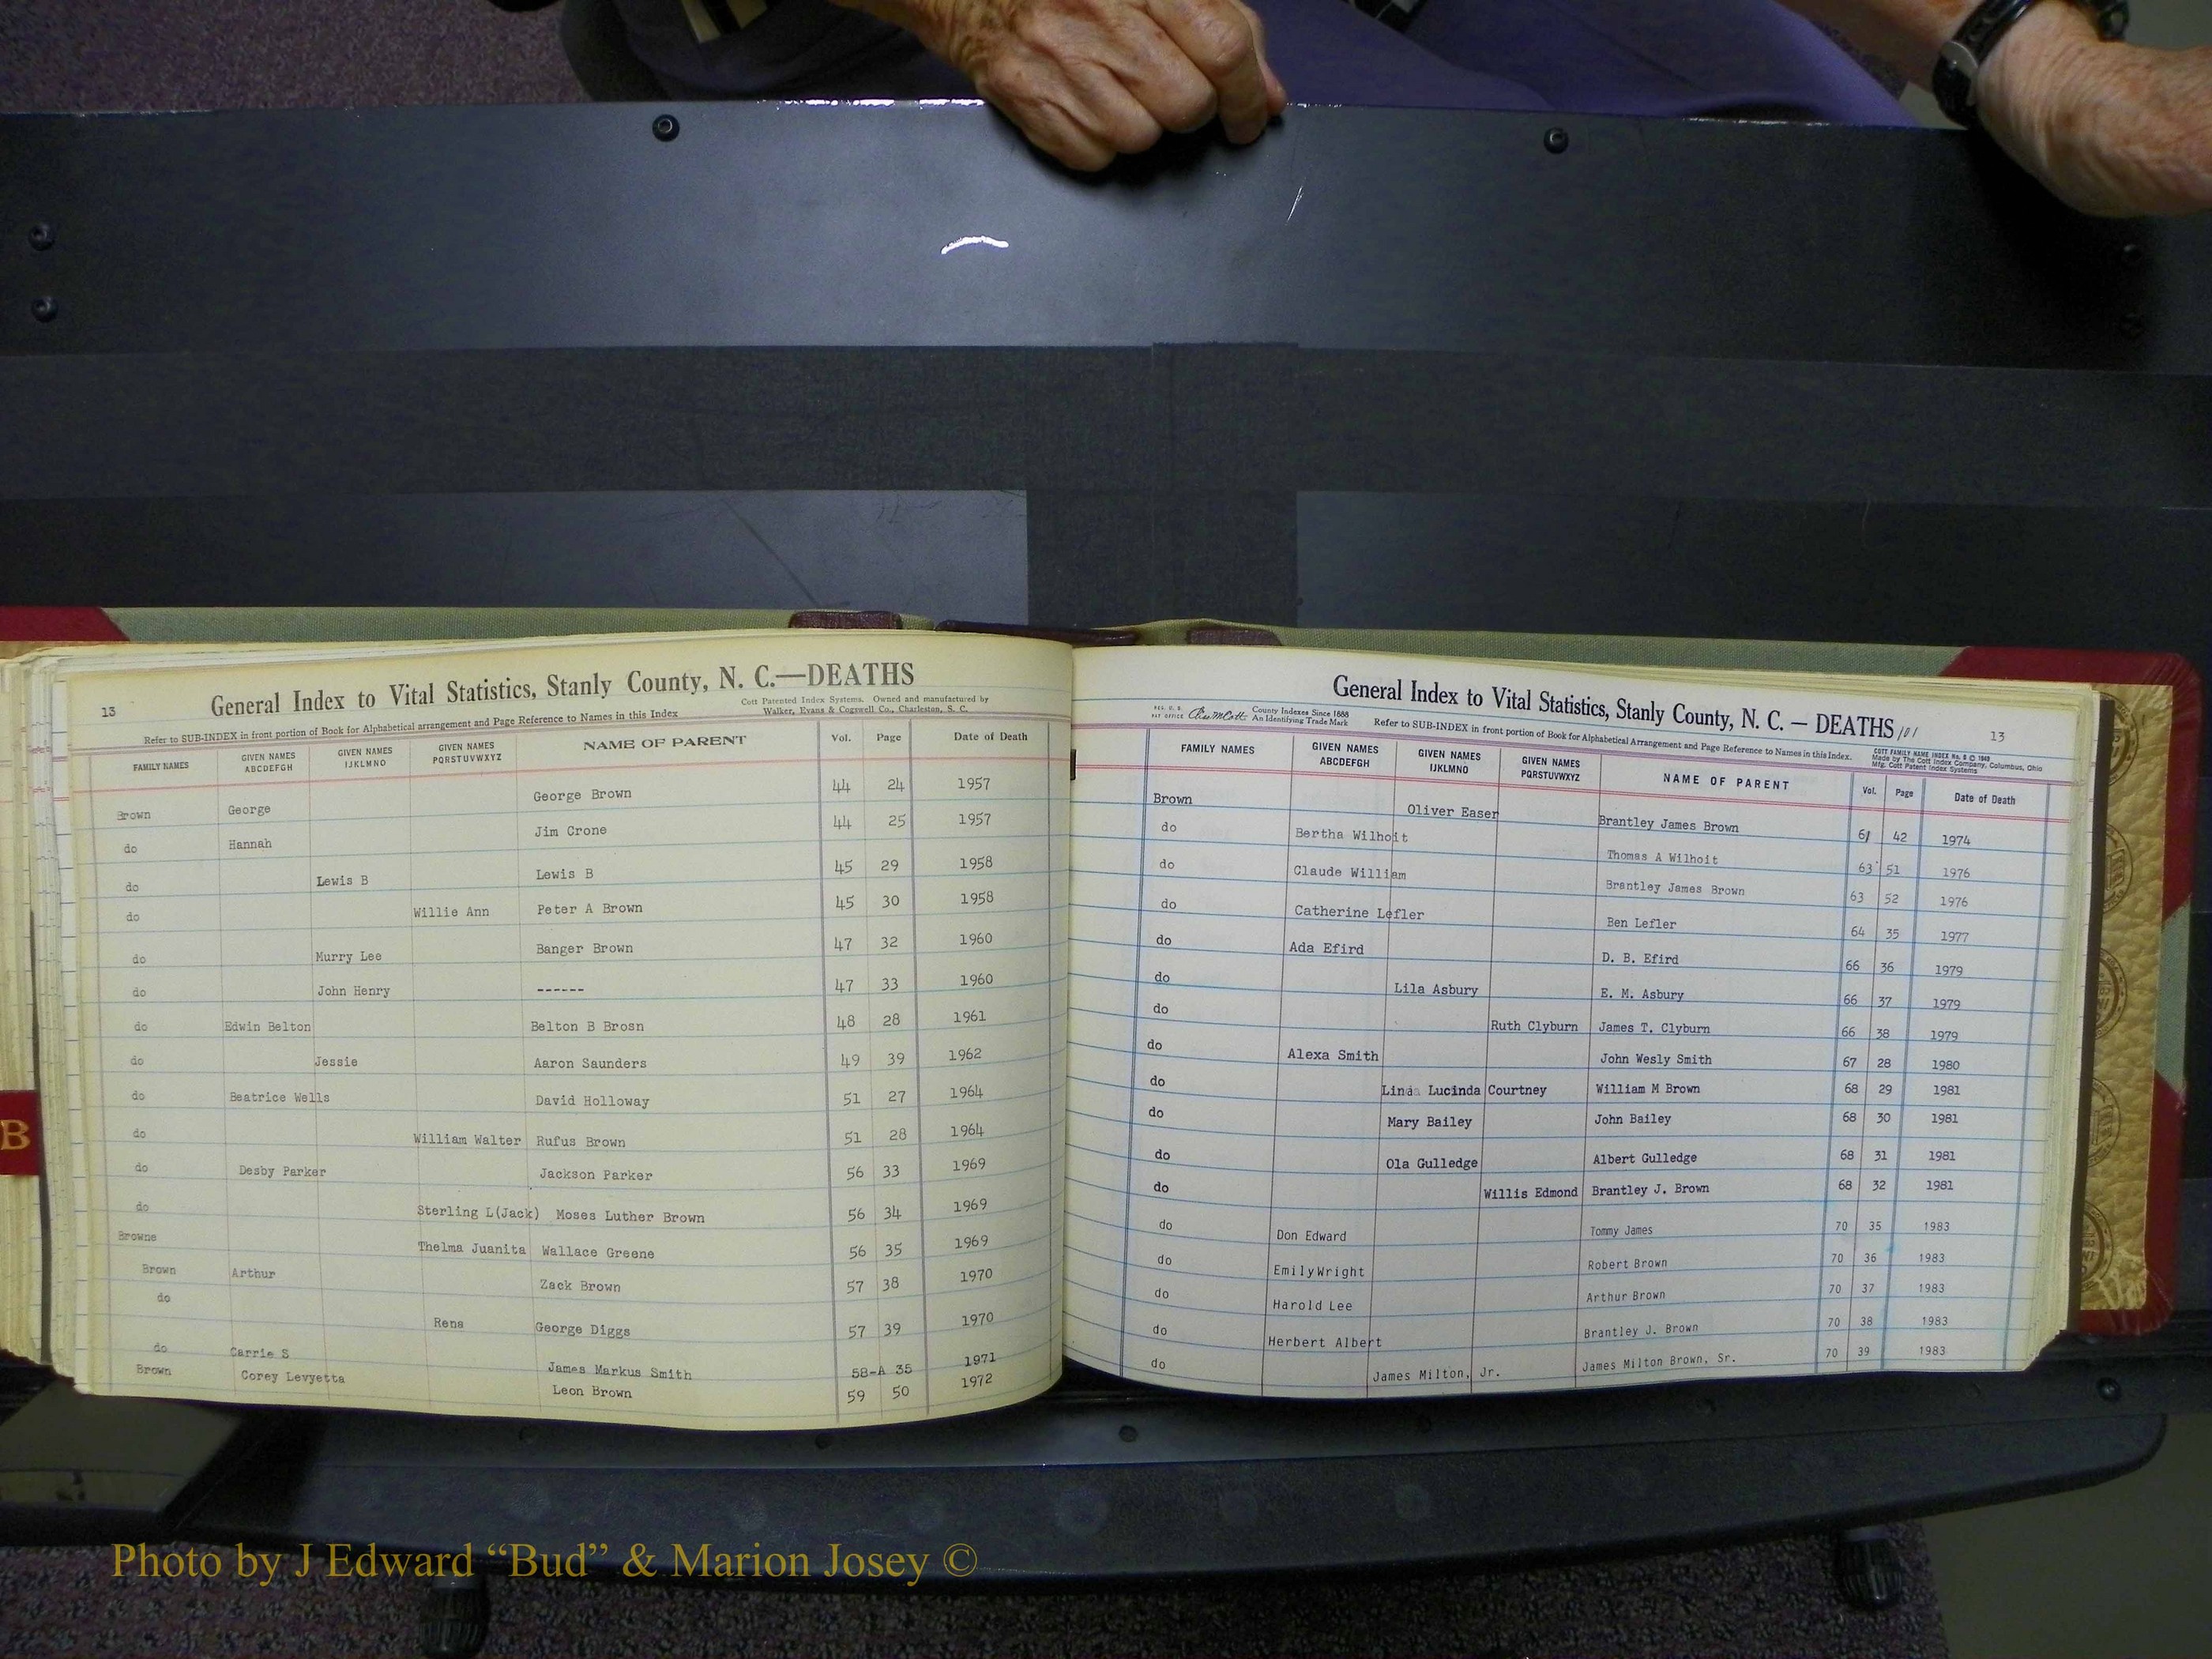 13
General Index to Vital Statistics, Stanly County, N. C.—DEATHS
Cott Patented Index Systems. Owned and manufactured by
Walker, Evans & Cogswell Co., Charleston, S. C.
Refer to SUB-INDEX in front portion of Book for Alphabetical arrangement and Page Reference to Names in this Index
FAMILY NAMES GIVEN NAMES ABCDEFGH GIVEN NAMES IJKLMNO GIVEN NAMES PQRSTUVWXYZ NAME OF PARENT Vol. Page Date of Death
Brown George George Brown 44 24 1957
do Hannah Jim Crone 44 25 1957
do Lewis B Lewis B 45 29 1958
do Willie Ann Peter A Brown 45 30 1958
do Murry Lee Banger Brown 47 32 1960
do John Henry ------ 47 33 1960
do Edwin Belton Belton B Brosn 48 28 1961
do Jessie Aaron Saunders 49 39 1962
do Beatrice Wells David Holloway 51 27 1964
do William Walter Rufus Brown 51 28 1964
do Desby Parker Jackson Parker 56 33 1969
do Sterling L(Jack) Moses Luther Brown 56 34 1969
Browne Thelma Juanita Wallace Greene 56 35 1969
Brown Arthur Zack Brown 57 38 1970
do Rena George Diggs 57 39 1970
do Carrie S James Markus Smith 58-A 35 1971
Brown Corey Levyetta Leon Brown 59 50 1972
B
General Index to Vital Statistics, Stanly County, N. C. — DEATHS 101
13
REG. U. S. PAT OFFICE
County Indexes Since 1888
An Identifying Trade Mark
Refer to SUB-INDEX in front portion of Book for Alphabetical Arrangement and Page Reference to Names in this Index.
COTT FAMILY NAME INDEX No. 8 © 1949
Made by The Cott Index Company, Columbus, Ohio
Mfg. Cott Patent Index Systems
FAMILY NAMES GIVEN NAMES ABCDEFGH GIVEN NAMES IJKLMNO GIVEN NAMES PQRSTUVWXYZ NAME OF PARENT Vol. Page Date of Death
Brown Oliver Easer Brantley James Brown 61 42 1974
do Bertha Wilhoit Thomas A Wilhoit 63 51 1976
do Claude William Brantley James Brown 63 52 1976
do Catherine Lefler Ben Lefler 64 35 1977
do Ada Efird D. B. Efird 66 36 1979
do Lila Asbury E. M. Asbury 66 37 1979
do Ruth Clyburn James T. Clyburn 66 38 1979
do Alexa Smith John Wesly Smith 67 28 1980
do Linda Lucinda Courtney William M Brown 68 29 1981
do Mary Bailey John Bailey 68 30 1981
do Ola Gulledge Albert Gulledge 68 31 1981
do Willis Edmond Brantley J. Brown 68 32 1981
do Don Edward Tommy James 70 35 1983
do EmilyWright Robert Brown 70 36 1983
do Harold Lee Arthur Brown 70 37 1983
do Herbert Albert Brantley J. Brown 70 38 1983
do James Milton, Jr. James Milton Brown, Sr. 70 39 1983
Photo by J Edward “Bud” & Marion Josey ©